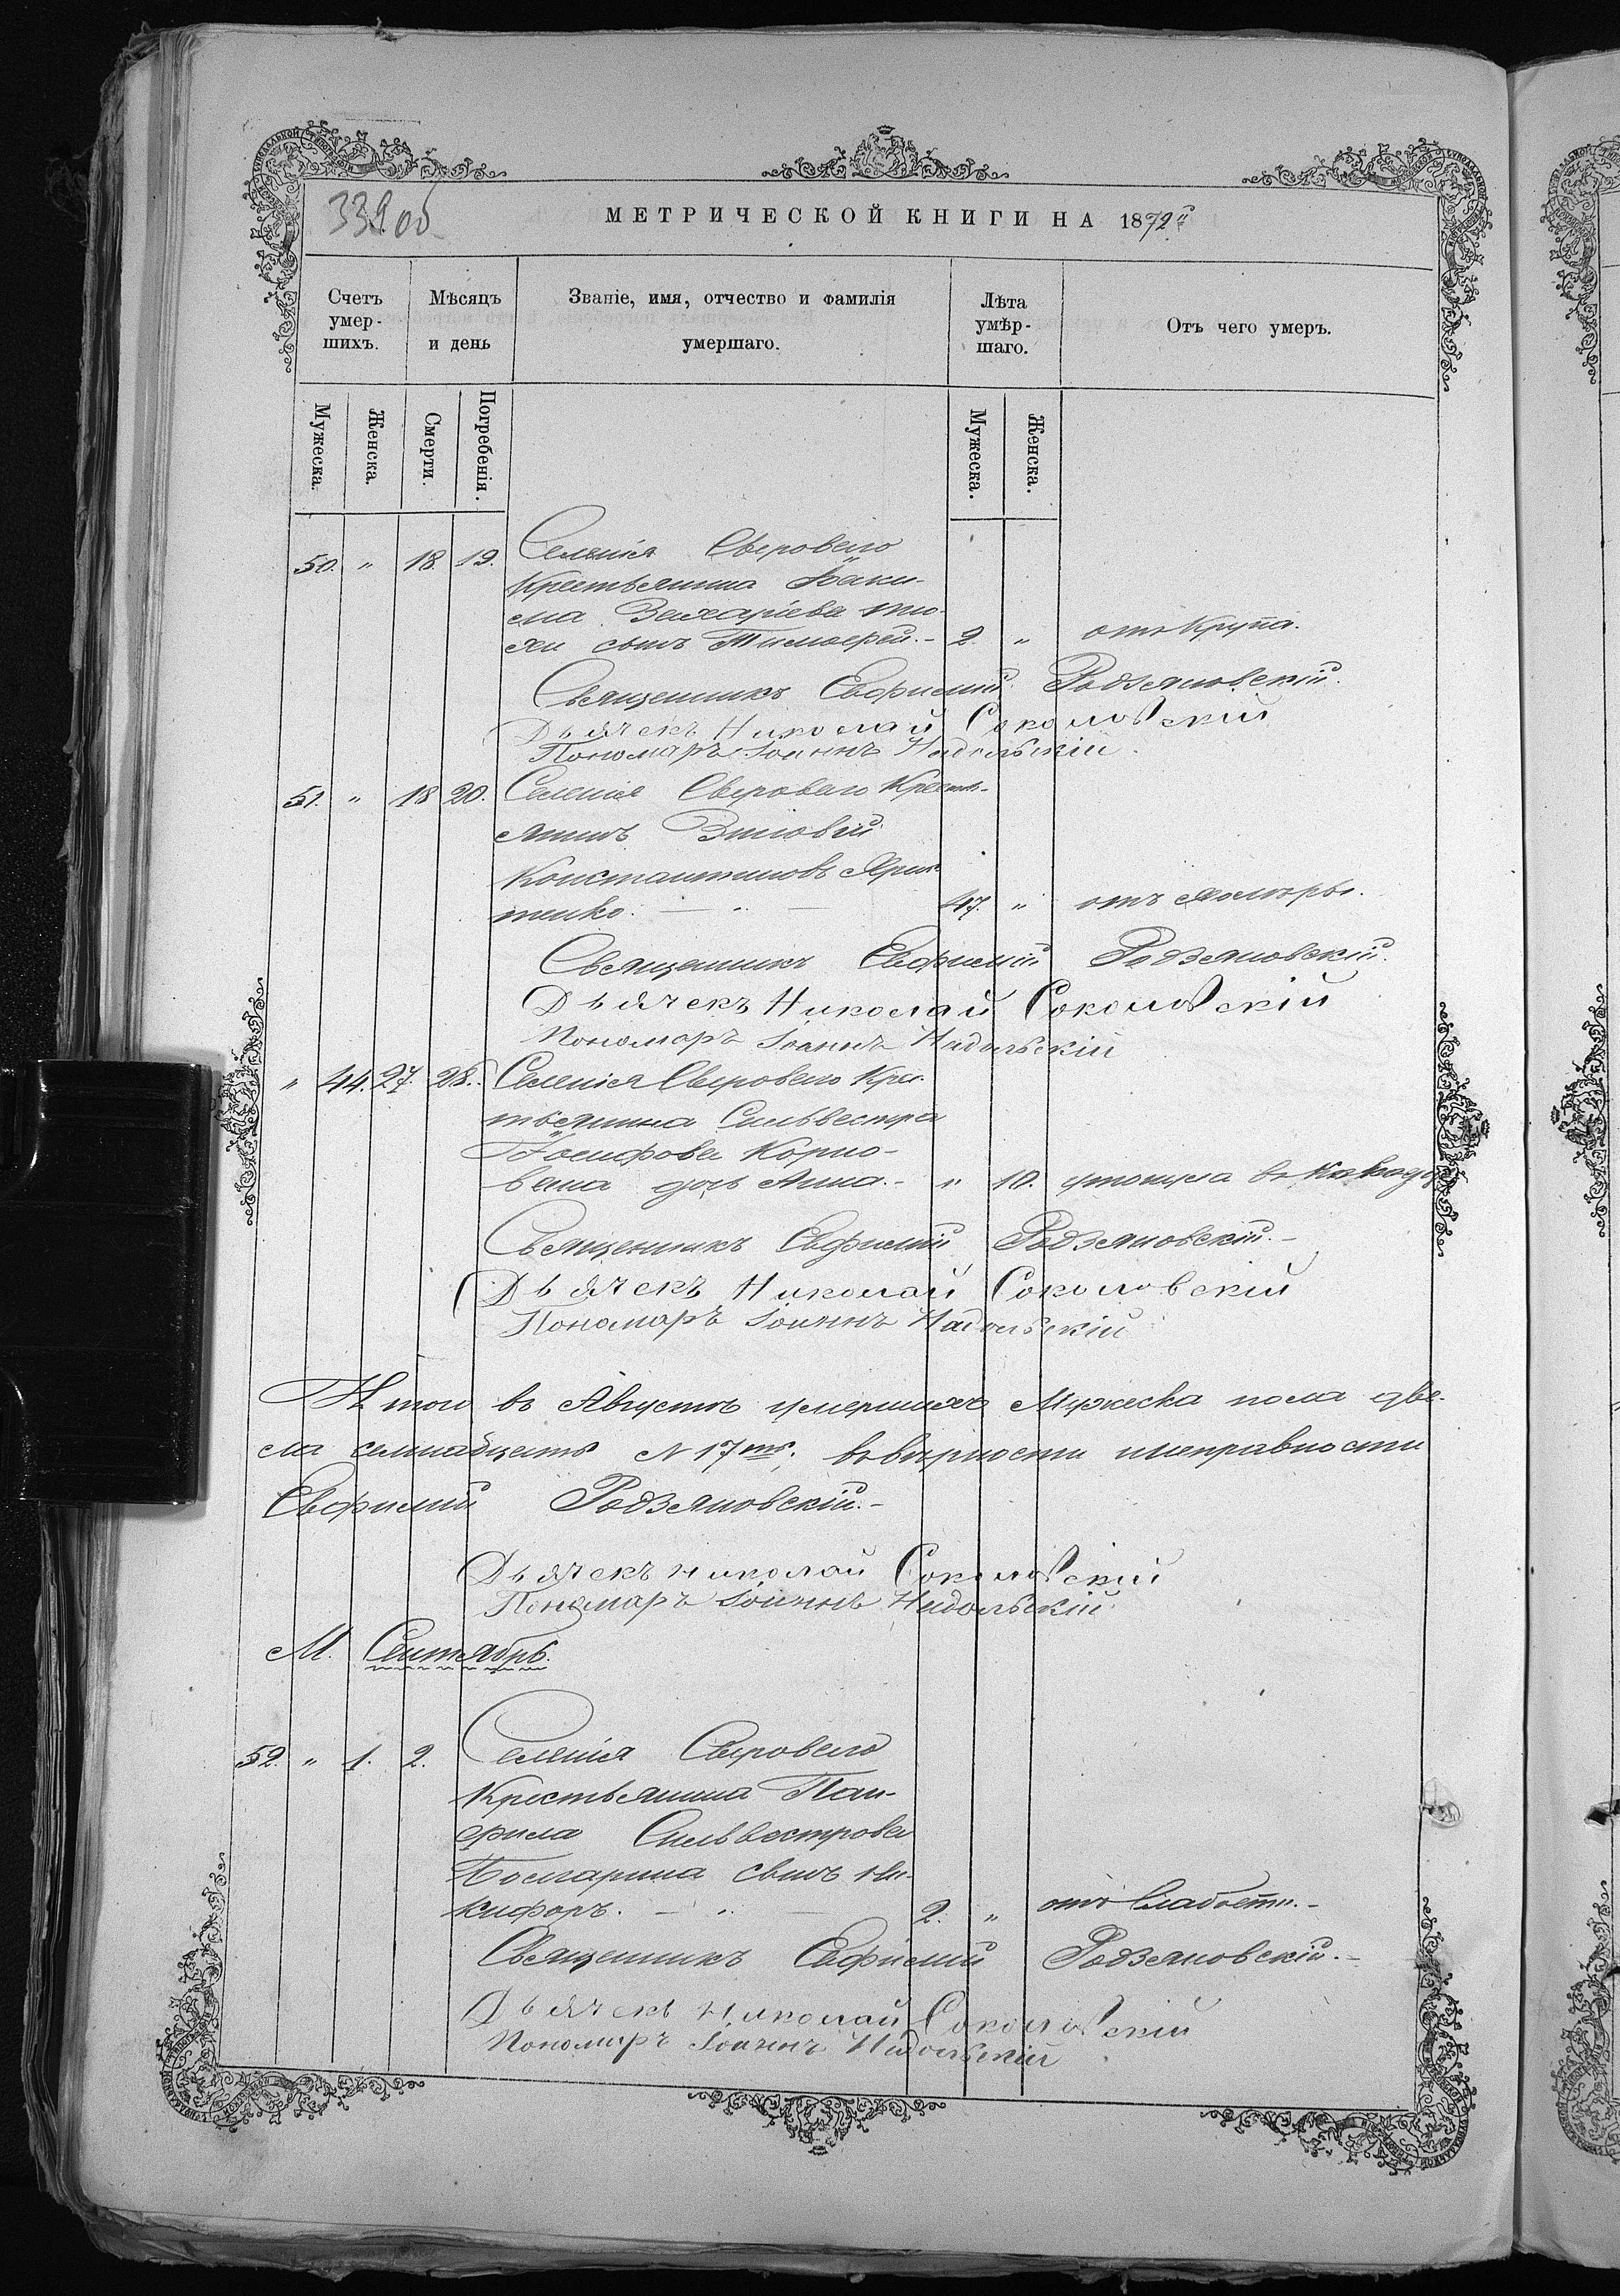 339 об
МЕТРИЧЕСКОЙ КНИГИ НА 1872й
Счетъ умер- шихъ.
Мѣсяцъ и день
Званіе, имя, отчество и фамилія умершаго.
Лѣта умѣр- шаго.
Отъ чего умеръ.
Мужеска.
Женска.
Смерти.
Погребенія.
Мужеска.
Женска.
50. " 18. 19. Селенія Сыровего
Крестьянина Іоаки-
ма Захаріева
сынъ Тимофей. - 2 " отъ Крупа.
Священникъ Евфимій Родзяновскій.
Дьячекъ Николай Соколовскій
Пономаръ Іоаннъ Надольскій.
51. " 18 20. Селенія Сыровего Кресть-
янинъ
Константиновъ
тенко. — " — 47. " отъ холеры.
Священникъ Евфимій Родзяновскій.
Дьячекъ Николай Соколовскій
Пономаръ Іоаннъ Надольскій
" 44. 27. 28. Селенія Сыровего Крес-
тьянина Сильвестра
Іосифова Корно-
вана дочь Анна. - " 10. утонула въ
Священникъ Евфимій Родзяновскій. -
Дьячекъ Николай Соколовскій
Пономаръ Іоаннъ Надольскій
Итого въ Августѣ умершихъ Мужеска пола
семнадцать N 17ть.
Евфимій Родзяновскій. -
Дьячекъ Николай Соколовскій
Пономаръ Іоаннъ Надольскій
М. Сентябрь.
52. " 1. 2. Селенія Сыровего
Крестьянина Пан-
фила Сильвестрова
Болгарина сынъ Ни-
кифоръ. — " — 2. " отъ Слабости. -
Священникъ Евфимій Родзяновскій. -
Дьячекъ Николай Соколовскій
Пономаръ Іоаннъ Надольскій